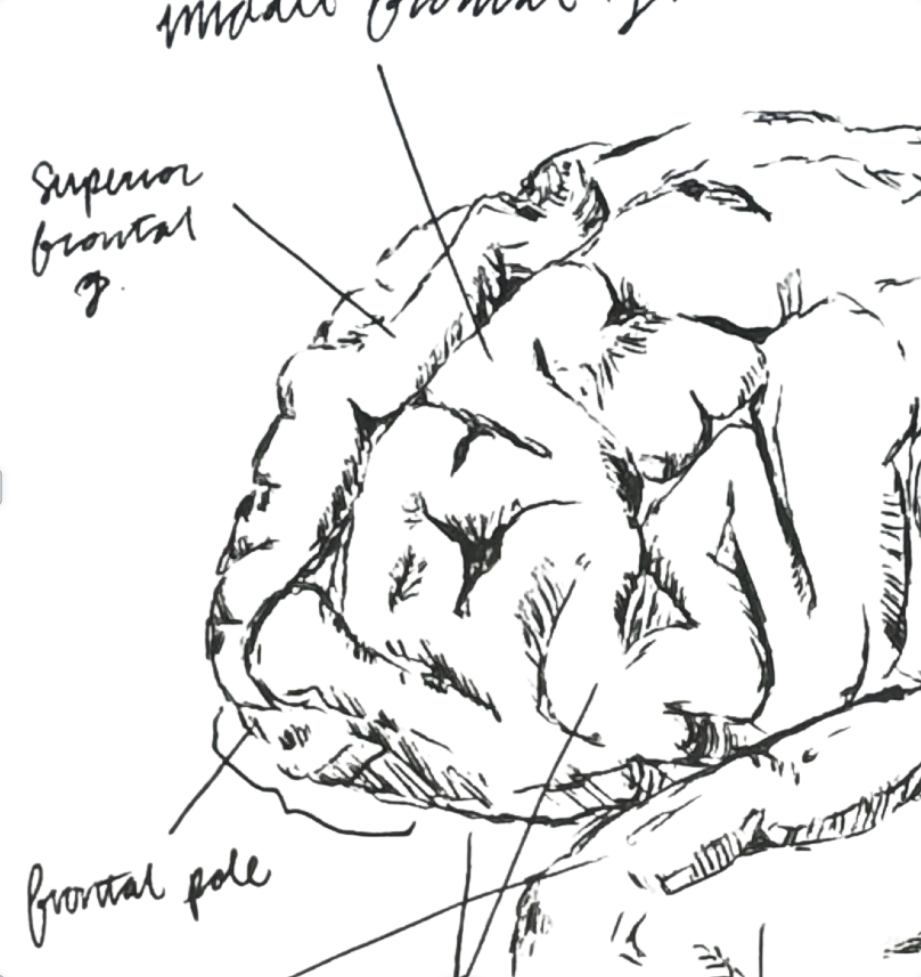 middle frontal g.
Superior
frontal
g.
frontal pole